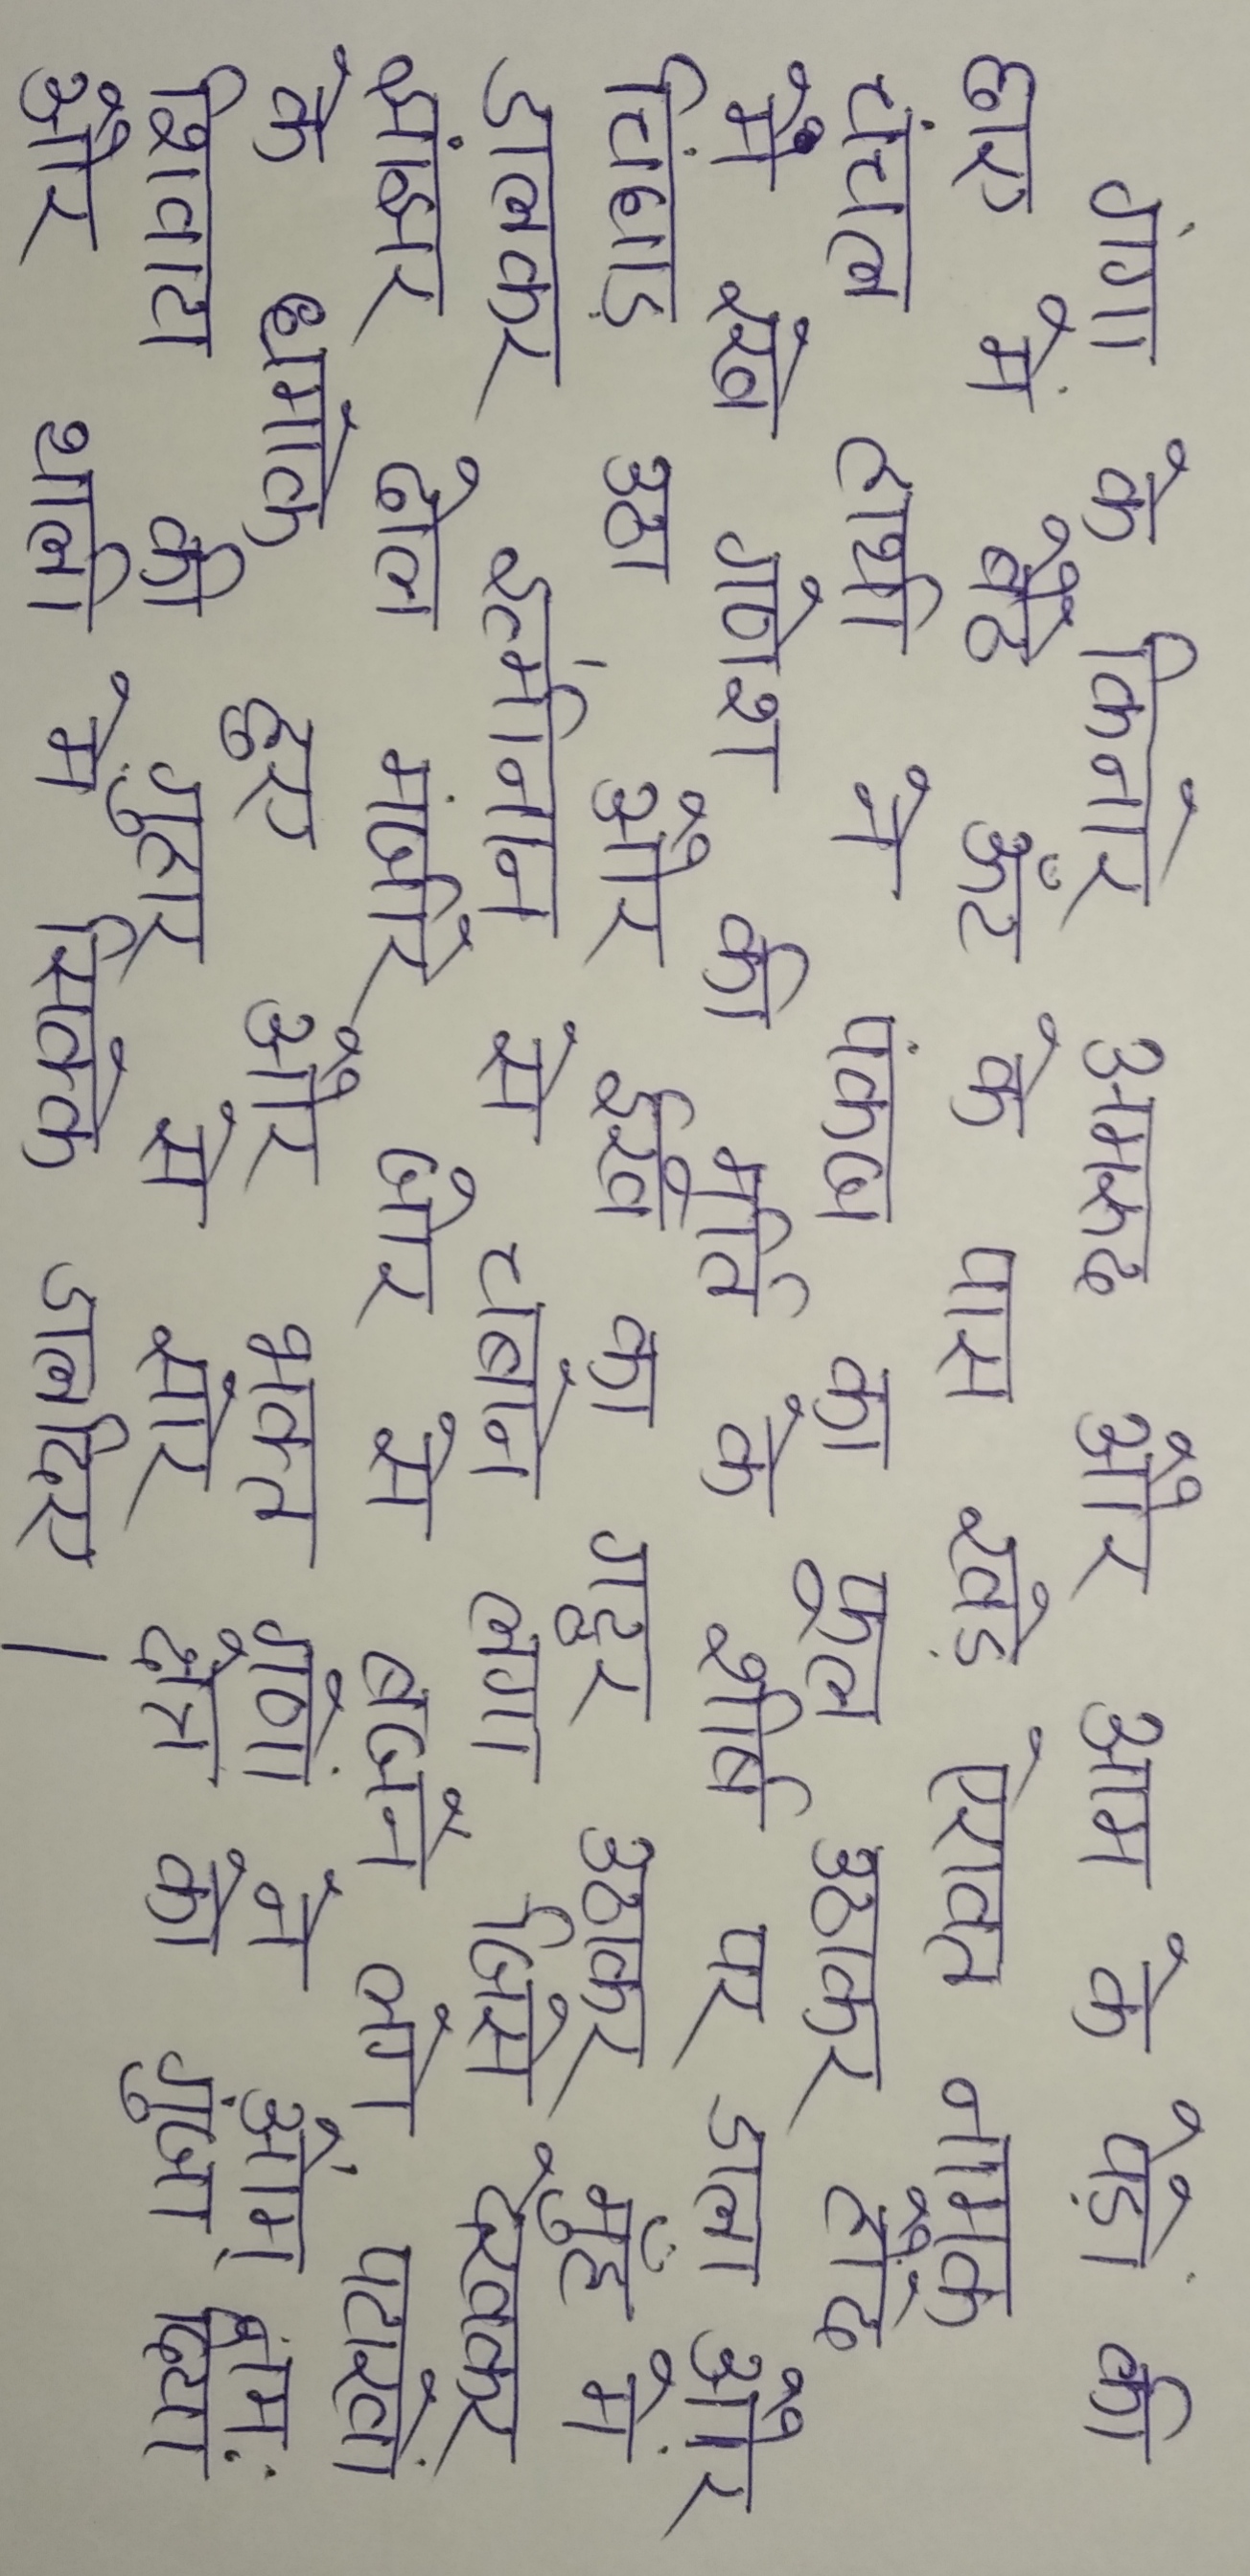 गंगा के किनारे अमरुद और आम के पेड़ों की
छाए में बैठे ऊँट के पास खड़े ऐरावत नामक
चंचल हाथी ने पंकज का फूल उठाकर हौदे
में रखे गणेश की मूर्ति के शीर्ष पर डाला और
चिंघाड़ उठा, और ईख का गट्ठर उठाकर मुँह में
डालकर इत्मीनान से चबाने लगा जिसे देखकर
झांझर ढोल मंजीरे जोर से बजने लगे, पटाखों
के धमाके हुए और भक्त गणों ने ओम् नमः
शिवाय की गुहार से सारे क्षेत्र को गुंजा दिया
और थाली में सिक्के डालदिए |